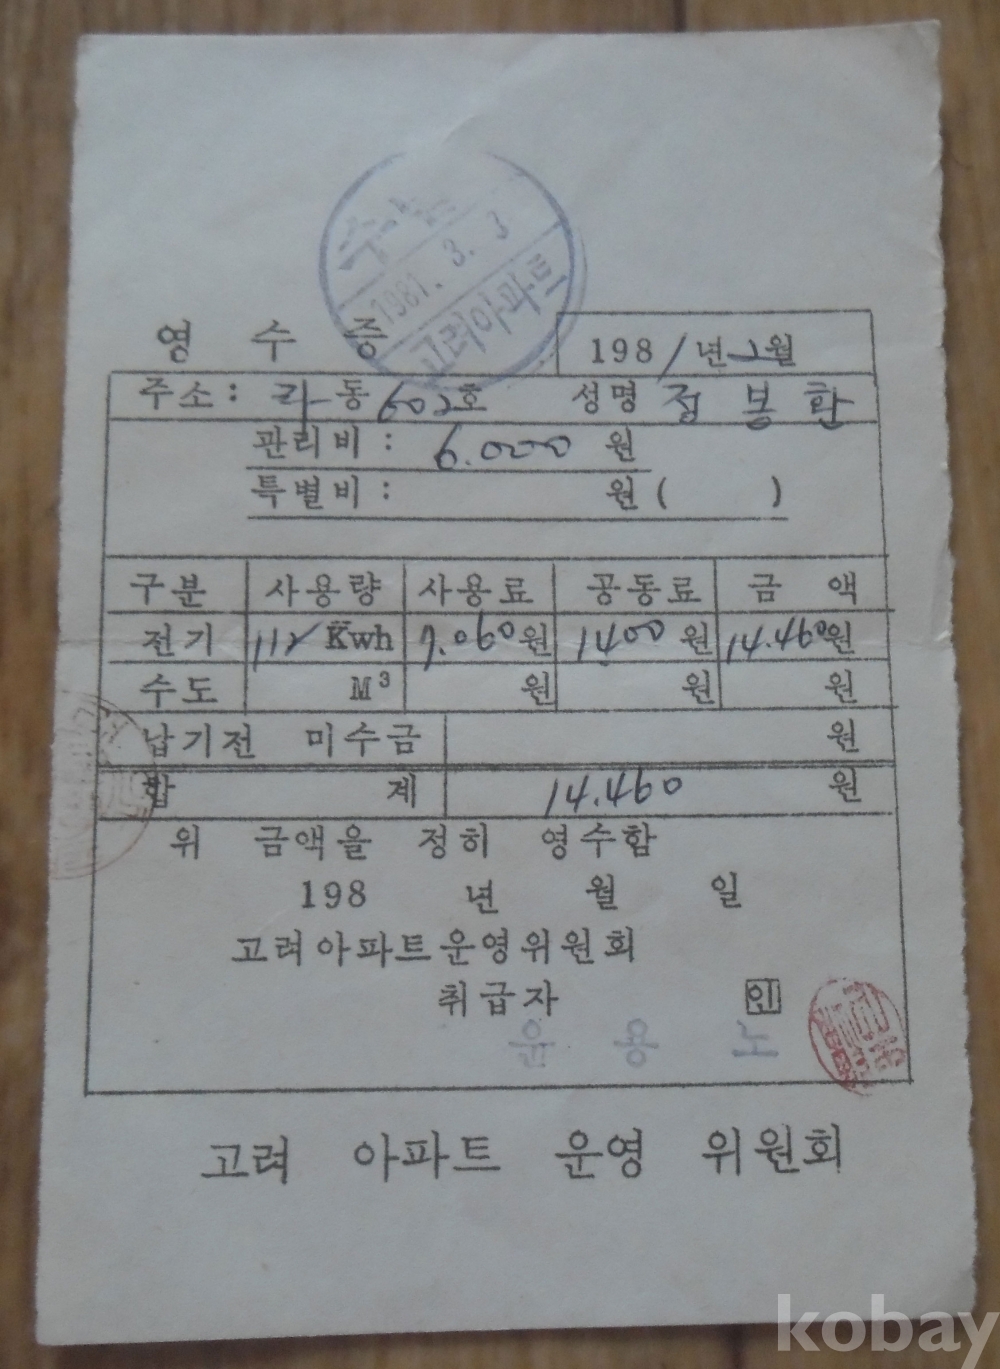 수납
1981. 3. 3
고려아파트
영 수 증
1981년 2월
주소: 라동 602호 성명 정봉환
관리비: 6.000 원
특별비: 원 ( )
구분 사용량 사용료 공동료 금 액
전기 112 Kwh 7.060원 1400원 14.460원
수도 M³ 원 원 원
납기전 미수금 원
합 계 14.460 원
위 금액을 정히 영수함
198 년 월 일
고려아파트운영위원회
취급자 인
윤 용 노
고려 아파트 운영 위원회
kobay